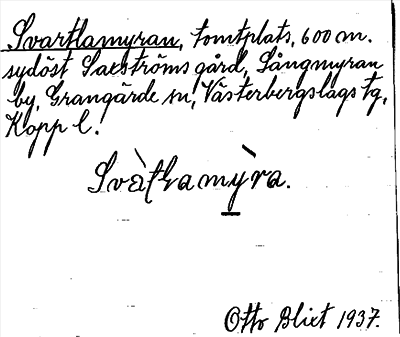 Svartlamyran, tomtplats, 600 m.
sydöst Saxströms gård, Långmyran
by, Grangärde sn, Västerbergslags tg,
Kopp l.
Svàtlamỳra.
Otto Blixt 1937.